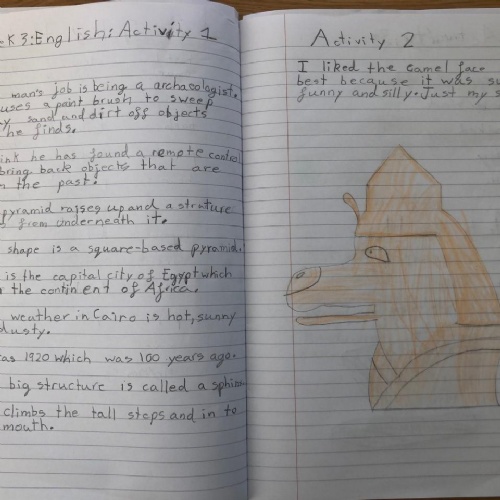 K3:English:Activity 1
man's job is being a archaeologist.
uses a paint brush to sweep
sand and dirt off objects
he finds.
he has found a remote control
bring back objects that are
the past!
pyramid raises up and a struture
from underneath it.
shape is a square-based pyramid.
is the capital city of Egypt which
the continent of Africa.
weather in Cairo is hot, sunny
dusty.
1920 which was 100 years ago.
big structure is called a
climbs the tall steps and in to
mouth.
Activity 2
I liked the camel face
best because it was
funny and silly. Just my